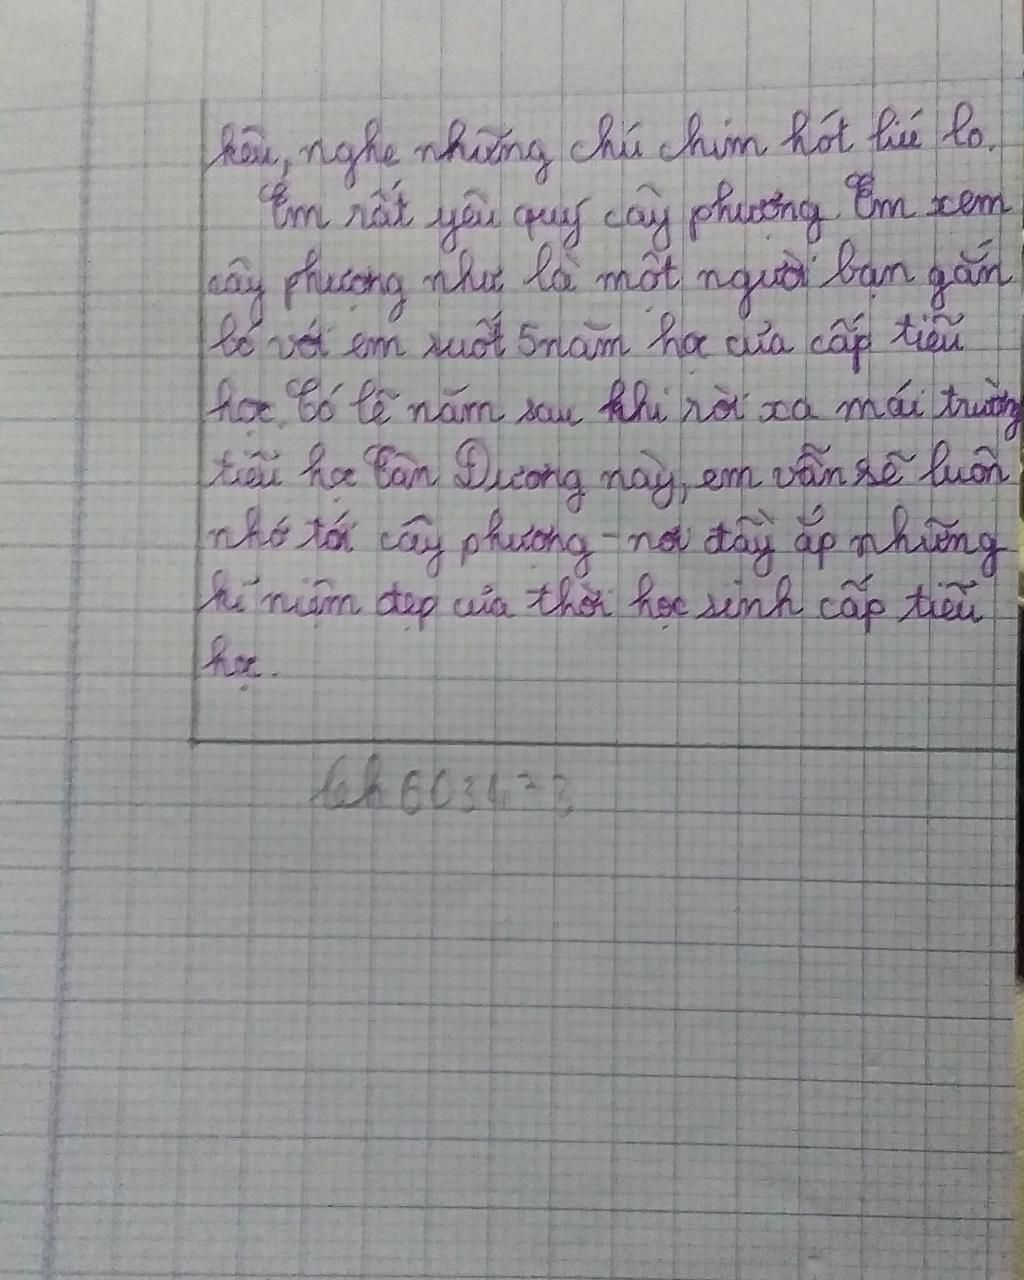 hồu, nghe những chú chim hót líu lo.
Em rất yêu quý cây phượng. Em xem
cây phượng như là một người bạn gắn
bó với em suốt 5 năm học của cấp tiểu
học. Có lẽ năm sau khi rời xa mái trường
tiểu học Tân Dương này, em vẫn sẽ luôn
nhớ tới cây phượng - nơi đầy ắp những
kỉ niệm đẹp của thời học sinh cấp tiểu
học.